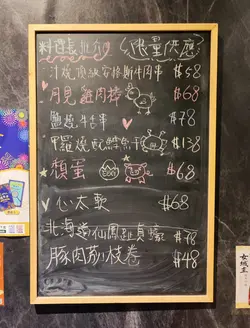 料理長推介 限量供應
汁燒頂級安格斯牛肉串 $58
月見雞肉棒 $68
鹽燒牛舌串 $78
甲羅燒 $138
類蛋 $68
心太軟 $68
北海道仙鳳趾真蠔 $78
豚肉荔枝卷 $48